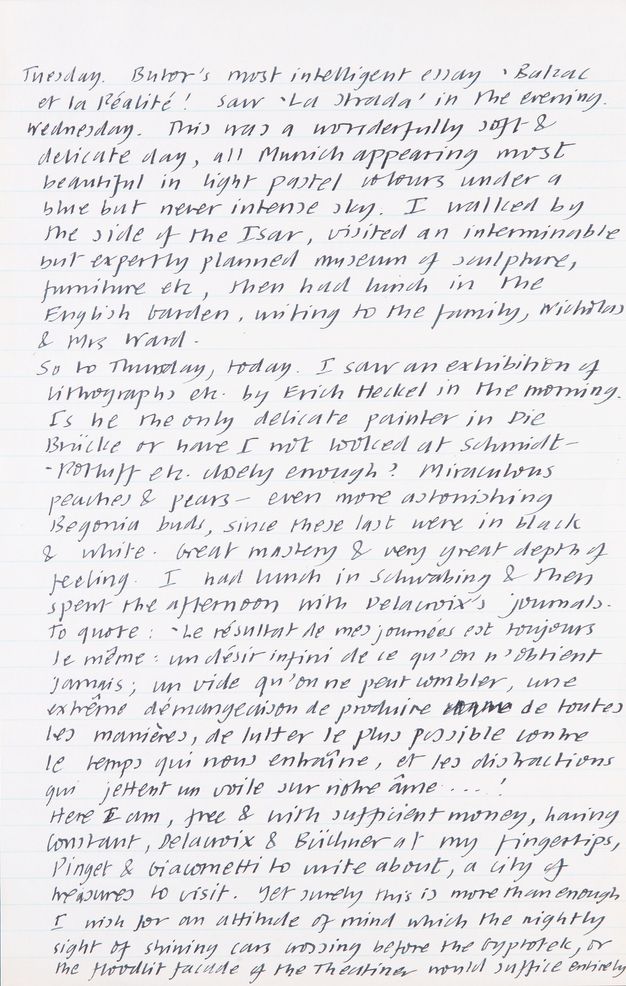 Tuesday. Butor's most intelligent essay 'Balzac
et la Réalité'! Saw 'La Strada' in the evening.
Wednesday. This was a wonderfully soft &
delicate day, all Munich appearing most
beautiful in light pastel colours under a
blue but never intense sky. I walked by
the side of the Isar, visited an interminable
but expertly planned museum of sculpture,
furniture etc, then had lunch in the
English Garden, writing to the family, Nicholas
& Mrs Ward.
So to Thursday, today. I saw an exhibition of
lithographs etc. by Erich Heckel in the morning.
Is he the only delicate painter in Die
Brücke or have I not looked at Schmidt-
-Rottluff etc. closely enough? Miraculous
peaches & pears – even more astonishing
Begonia buds, since these last were in black
& white. Great mastery & very great depth of
feeling. I had lunch in Schwabing & then
spent the afternoon with Delacroix's journals.
To quote: 'Le résultat de mes journées est toujours
le même: un désir infini de ce qu'on n'obtient
jamais; un vide qu'on ne peut combler, une
extrême démangeaison de produire de toutes
les manières, de lutter le plus possible contre
le temps qui nous entraîne, et les distractions
qui jettent un voile sur notre âme ....!
Here I am, free & with sufficient money, having
Constant, Delacroix & Büchner at my fingertips,
Pinget & Giacometti to write about, a city of
treasures to visit. Yet surely this is more than enough
I wish for an attitude of mind which the nightly
sight of shining cars crossing before the Glyptotek, or
the floodlit facade of the Theatiner would suffice entirely